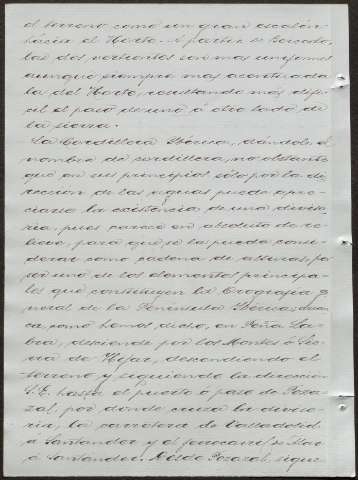 el terreno como un gran escalón
hácia el Norte. A partir de
las dos vertientes son mas uniformes
aunque siempre mas acentuada
la del Norte, resultando mas difi-
cil el paso de uno á otro lado de
la sierra.
La Cordillera Ibérica, dándole el
nombre de cordillera, no obstante
que en sus principios sólo por la di-
reccion de las aguas puede apre-
ciarse la existencia de una diviso-
ria, pues carece en absoluto de re-
lieve, para que se la pueda consi-
derar como cadena de alturas, por
ser uno de los elementos principa-
les que constituyen la Orografia ge-
neral de la Península Ibérica, arran-
ca, como hemos dicho, en Peña La-
bra, desciende por los Montes ó Sie-
rra de Hijar, descendiendo el
terreno y siguiendo la direccion
S.E. hasta el puerto ó paso de Poza-
zal, por donde cruza la diviso-
ria, la carretera de Valladolid
á Santander y el ferrocarril de Alar
á Santander. Desde Pozazal, sigue